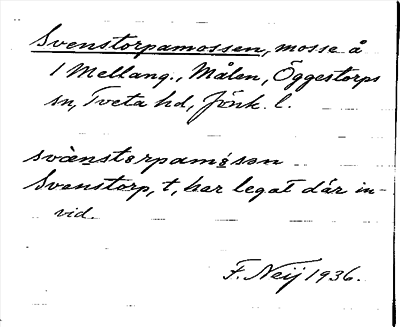 Svenstorpamossen, mosse å
1 Mellang., Målen, Öggestorps
sn, Tveta hd, Jönk. l.
svænstɵrpamåsən
Svenstorp, t, har legat där in-
vid.
F. Neij 1936.